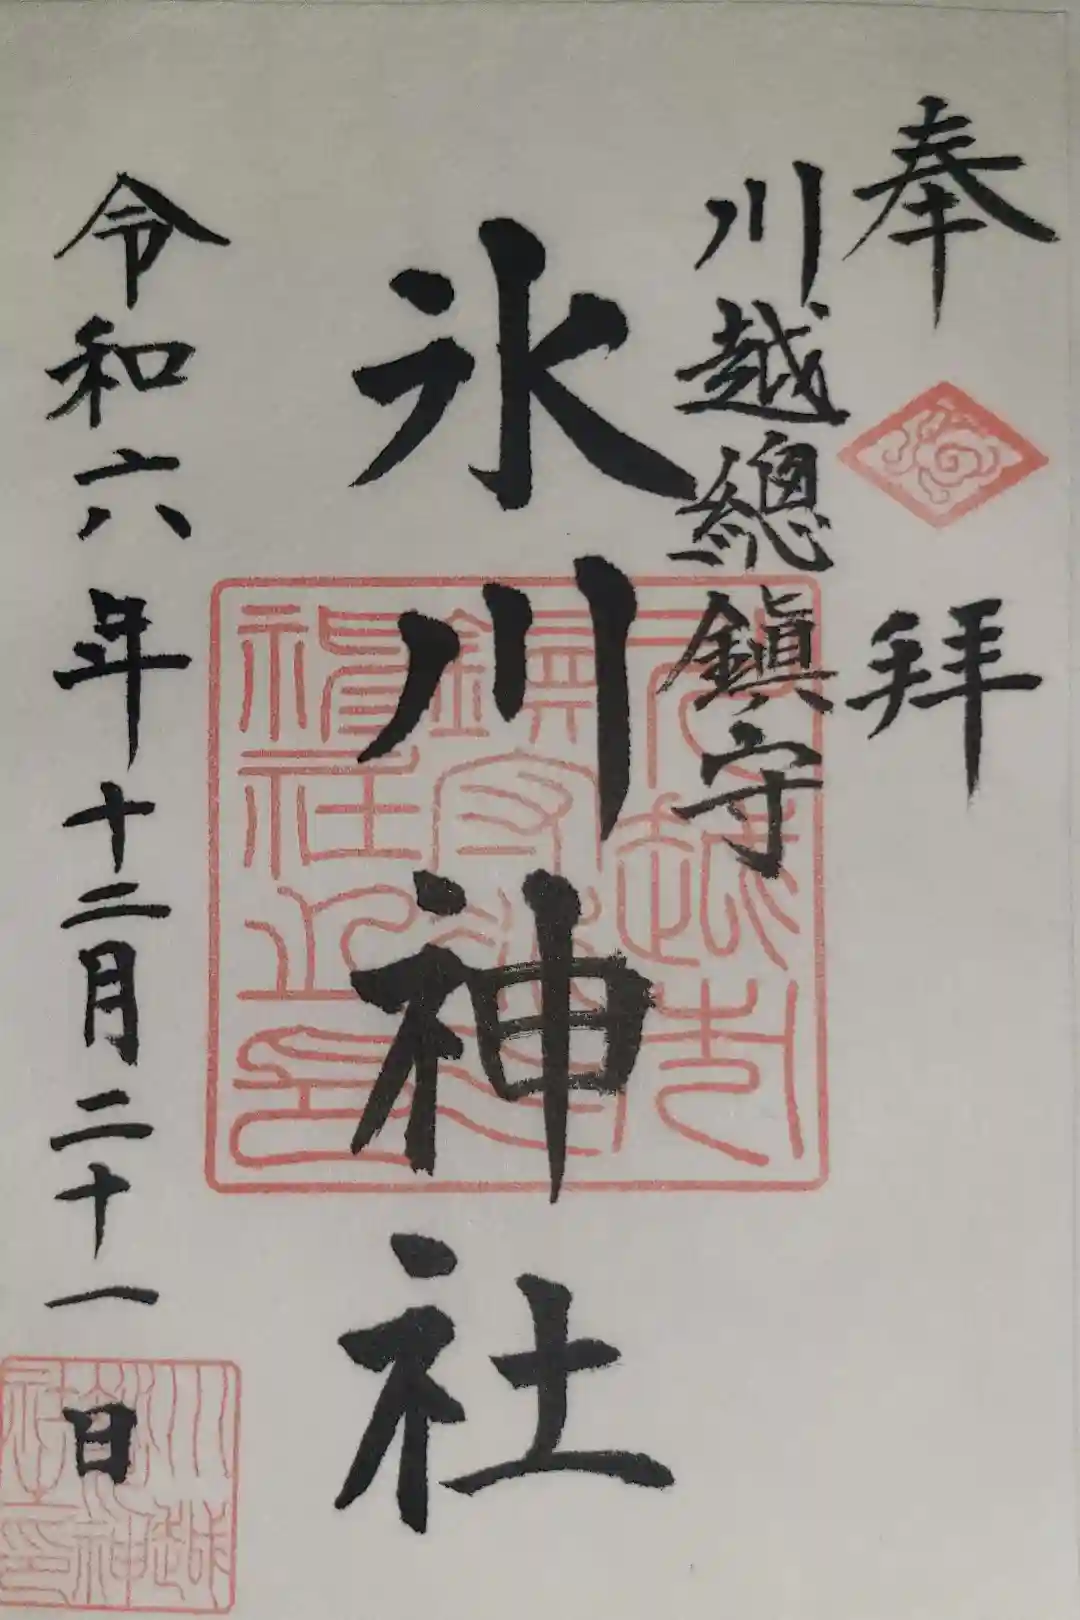 奉拜
川越總鎭守
氷川神社
令和六年十二月二十一日